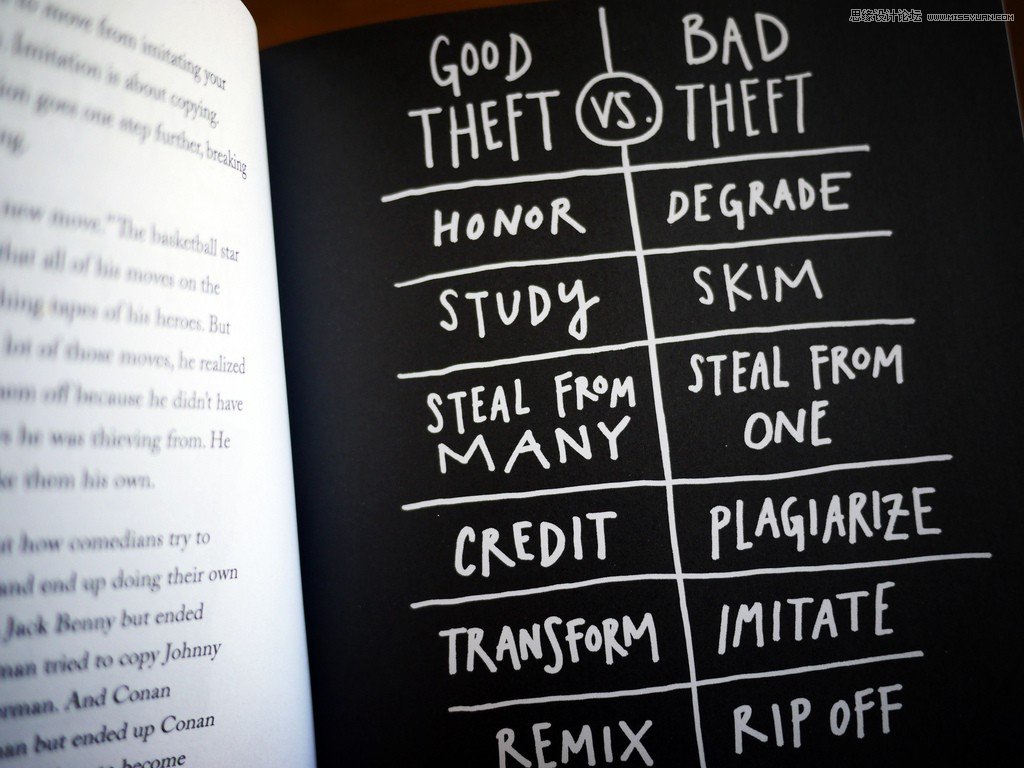 思缘设计论坛 WWW.MISSYUAN.COM
to move from imitating your
Imitation is about copying.
goes one step further, breaking
new move." The basketball star
that all of his moves on the
tapes of his heroes. But
lot of those moves, he realized
off because he didn't have
he was thieving from. He
them his own.
how comedians try to
and end up doing their own
Jack Benny but ended
tried to copy Johnny
And Conan
but ended up Conan
become
GOOD THEFT
VS.
BAD THEFT
HONOR DEGRADE
STUDY SKIM
STEAL FROM MANY STEAL FROM ONE
CREDIT PLAGIARIZE
TRANSFORM IMITATE
REMIX RIP OFF